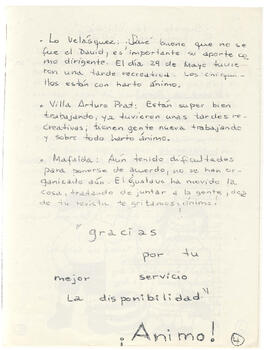 • Lo Velásquez: ¡Qué bueno que no se
fue el David, es importante su aporte co
mo dirigente. El día 29 de Mayo tuvie
ron una tarde recreativa. Los chiqui-
llos están con harto ánimo.
• Villa Arturo Prat: Están super bien
trabajando, ya tuvieron unas tardes re-
creativas; tienen gente nueva trabajando
y sobre todo harto ánimo.
• Mafalda: Aún tenido dificultades
para ponerse de acuerdo, no se han or-
ganizado aún. El Gustavo ha movido la
cosa, tratando de juntar a la gente, des
de tu revista te gritamos ¡ánimo!
"gracias
por tu
mejor servicio
La disponibilidad"
¡Animo!
4